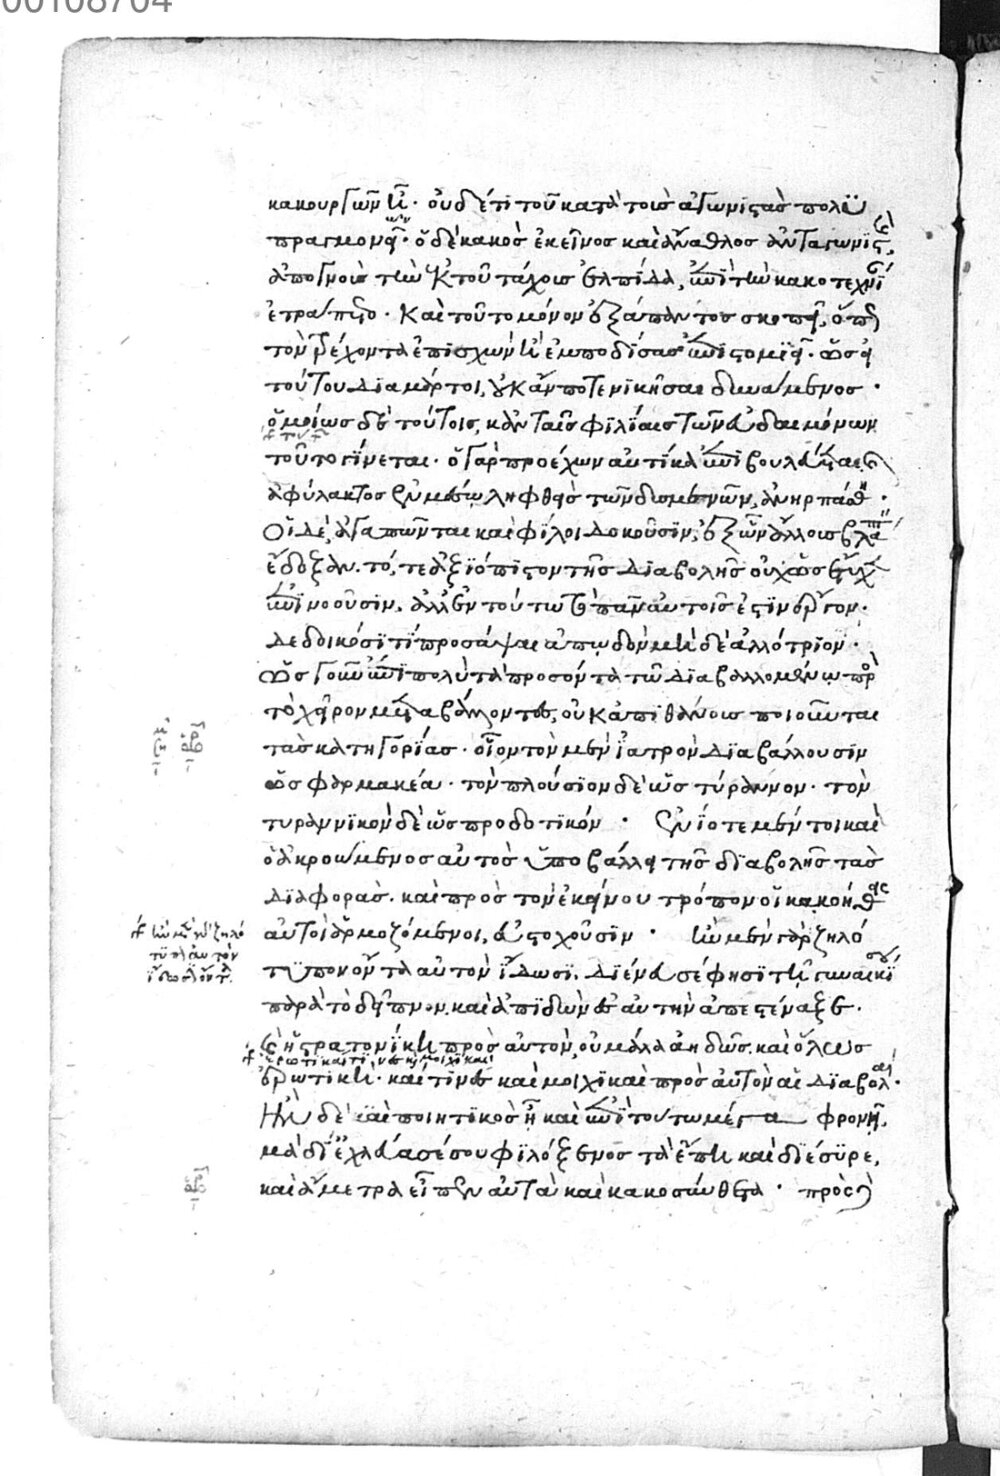 00108704
κακουργῶν ἢ. οὐδέ τι τοῦ κατὰ τοῖς ἀγωνιστὰς πολυ
πραγμονεῖ. ὁ δὲ κακὸς ἐκεῖνος καὶ ἄναθλος ἀνταγωνιστὴς,
ἀπογνοὺς τὴν ἐκ τοῦ τάχους ἐλπίδα, ἐπὶ τὴν κακοτεχνί
ἐτράπετο. καὶ τοῦτο μόνον ἐξάπαντος σκοπεῖ, ὅπως
τὸν τρέχοντα ἐπισχὼν ἢ ἐμποδίσας ἐπιστομιεῖ. ὡς εἰ
τούτου διαμάρτοι, οὐκ ἄν ποτε νικῆσαι δυνάμενος.
ὁμοίως δὲ τούτοις, κἀν ταῖς φιλίαις τῶν εὐδαιμόνων
τοῦτο γίνεται. ὁ γὰρ προέχων αὐτίκα ἐπιβουλεύεται
ἀφύλακτος ἐν μέσῳ ληφθεὶς τῶν δυσμενῶν, ἀνηρπάσθη.
Οἱ δὲ, ἀγαπῶνται καὶ φίλοι δοκοῦσιν, ἐξ ὧν ἄλλοις βλάπ
ἔδοξαν. τό, τε ἀξιόπιστον τῆς διαβολῆς οὐχ ὡς ἔτυχ
ἐπινοοῦσιν. ἀλλ' ἐν τούτῳ τὸ πᾶν αὐτοῖς ἐστὶν ἔργον.
δεδοικόσι τί προσάψαι ἀπῳδὸν ἢ δὲ ἀλλότριον.
ὡς γοῦν ἐπιπολὺ τὰ προσόντα τῷ διαβαλλομένῳ πρὸ
τὸ χεῖρον μεταβάλλοντες, οὐκ ἀπιθάνους ποιοῦνται
τὰς κατηγορίας. οἷον τὸν μὲν ἰατρὸν διαβάλλουσιν
ὡς φαρμακέα. τὸν πλούσιον δὲ ὡς τύραννον. τὸν
τυραννικὸν δὲ ὡς προδοτικόν. ἐνίοτε μέν τοι καὶ
ὁ ἀκροώμενος αὐτὸς ὑποβάλλει τῆς διαβολῆς τὰς
διαφορὰς. καὶ πρὸς τὸν ἐκείνου τρόπον οἱ κακοήθεις
αὐτοὶ ἁρμοζόμενοι, εὐστοχοῦσιν. ἢν μὲν γὰρ ζηλό
τυπον ὄντα αὐτὸν ἴδωσι. διένευσέ φησι τῇ γυναικί σου
παρὰ τὸ δεῖπνον. καὶ ἀπιδὼν ἐς αὐτὴν ἀπεστέναξε.
καὶ ἡ στρατονίκη πρὸς αὐτὸν, οὐ μάλα ἀηδῶς. καὶ ὅλως
ἐρωτικὴ. καὶ τινες καὶ μοιχικαὶ πρὸς αὐτὸν αἱ διαβολαί.
Ἢν δὲ ποιητικὸς ᾖ καὶ ἐπὶ τούτῳ μέγα φρονῇ,
μὰ δί' ἐχλεύασέ σου φιλόξενος τὰ ἔπη καὶ διέσυρε,
καὶ ἄμετρα εἶπεν αὐτὰ καὶ κακοσύνθετα. πρὸς